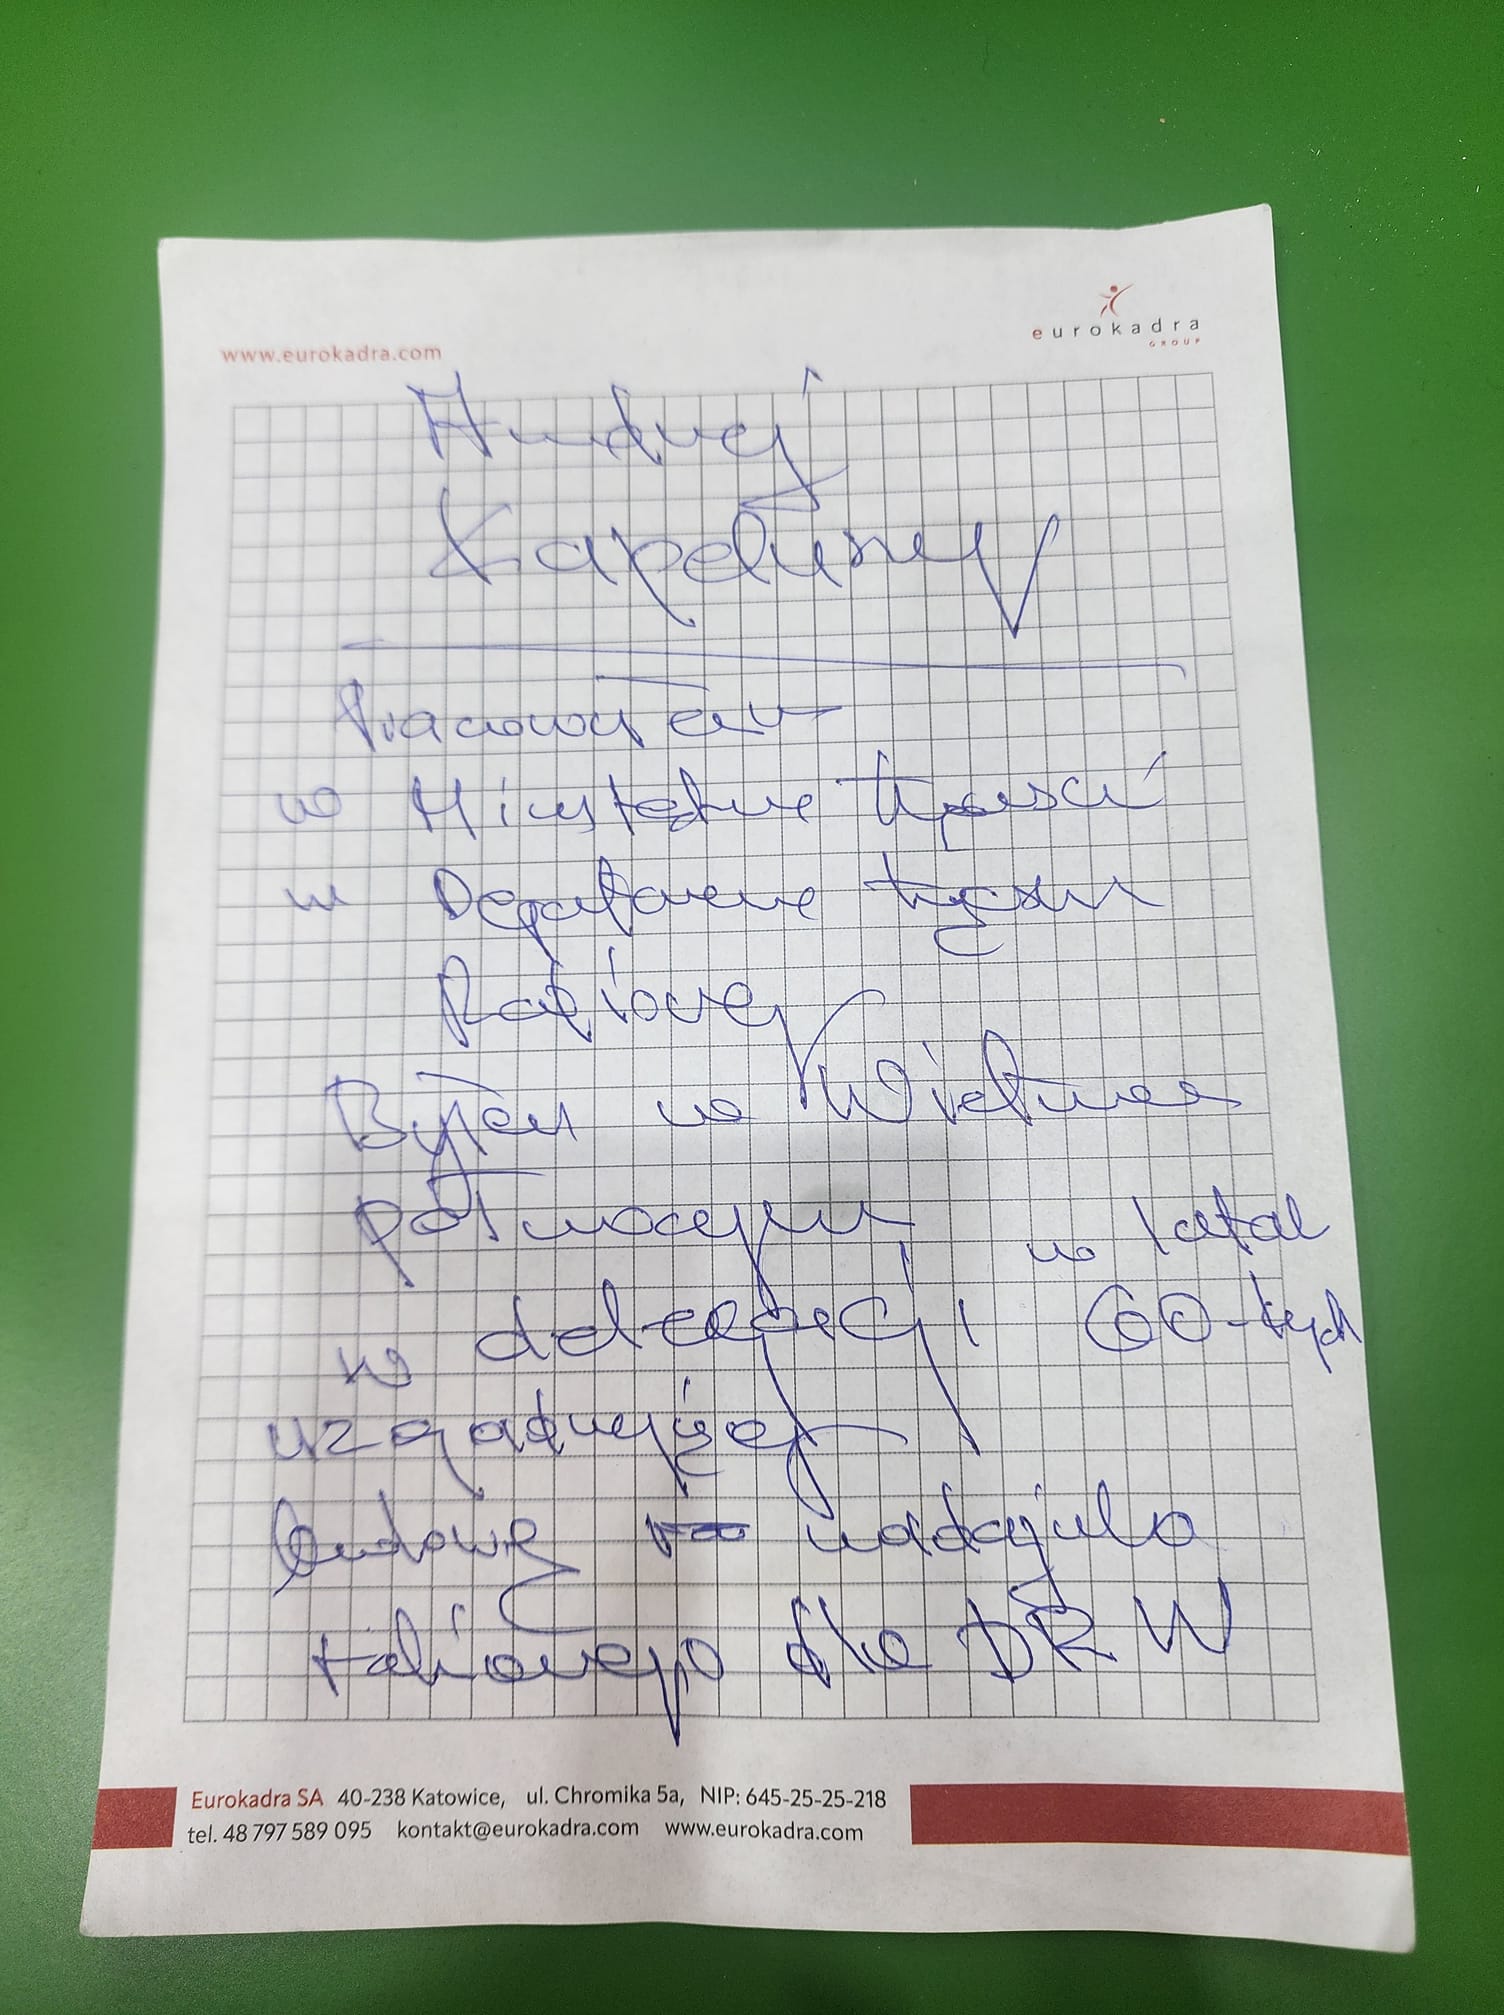 www.eurokadra.com
eurokadra
GROUP
Andrzej
Pracowałem
w Ministerstwie Łączności
w Departamencie
Radiowej
Byłem w Wietnamie
północnym
w latach
w delegacji 60-tych
uzgadniającej
budowę nadajnika
radiowego dla DRW
Eurokadra SA 40-238 Katowice, ul. Chromika 5a, NIP: 645-25-25-218
tel. 48 797 589 095 kontakt@eurokadra.com www.eurokadra.com